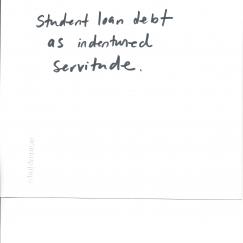 Student loan debt
as indentured
servitude.